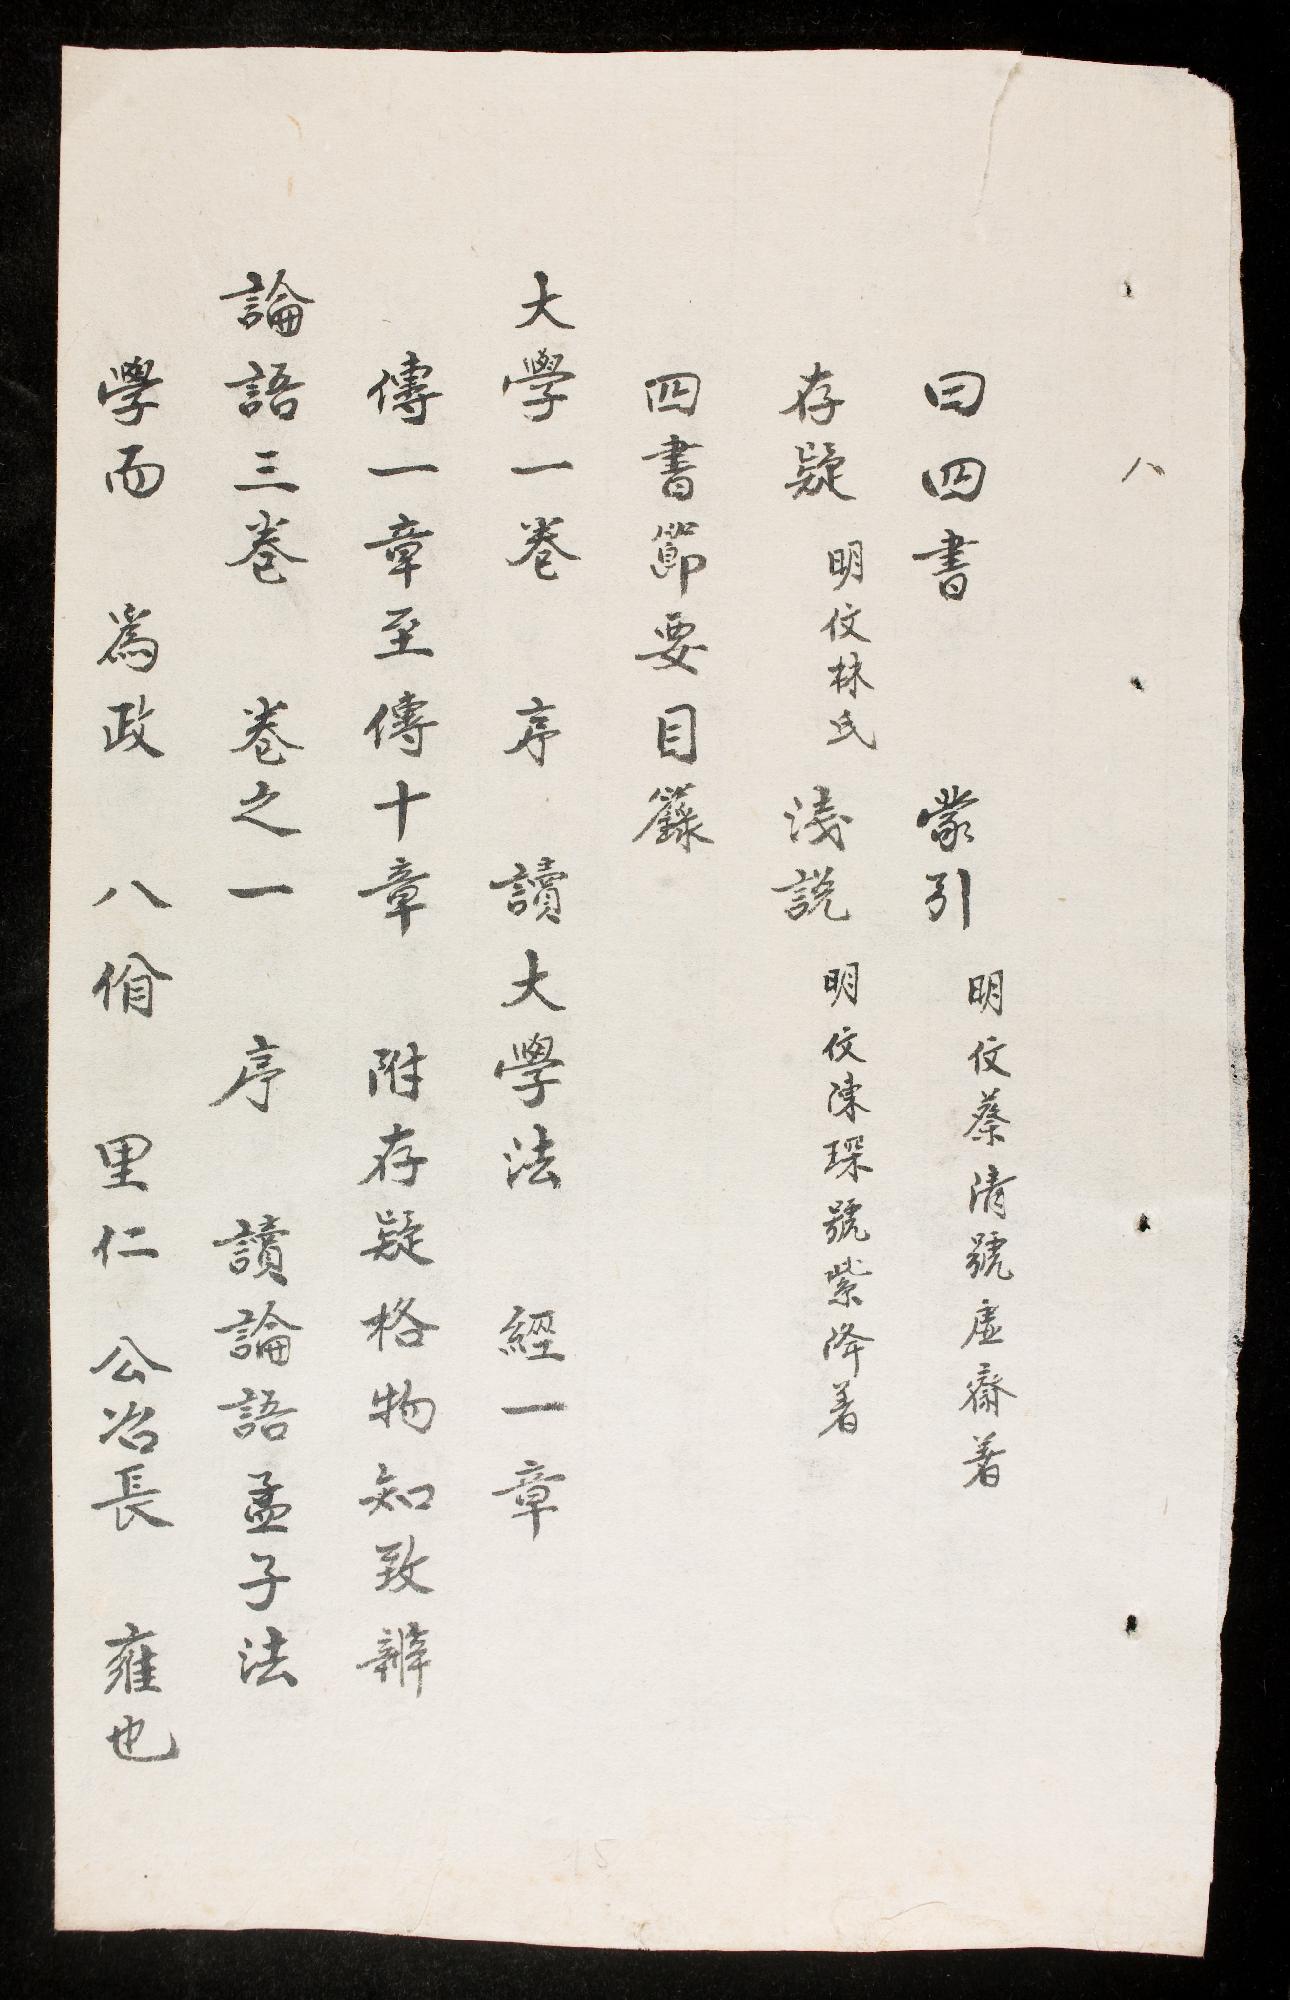 八
曰四書 蒙引 明伩蔡清號虛齋著
存疑 明伩林氏 淺說 明伩陳琛號紫降著
四書節要目籙
大學一卷 序 讀大學法 經一章
傳一章至傳十章 附存疑格物知致辨
論語三卷 卷之一 序 讀論語孟子法
學而 爲政 八佾 里仁 公冶長 雍也
15